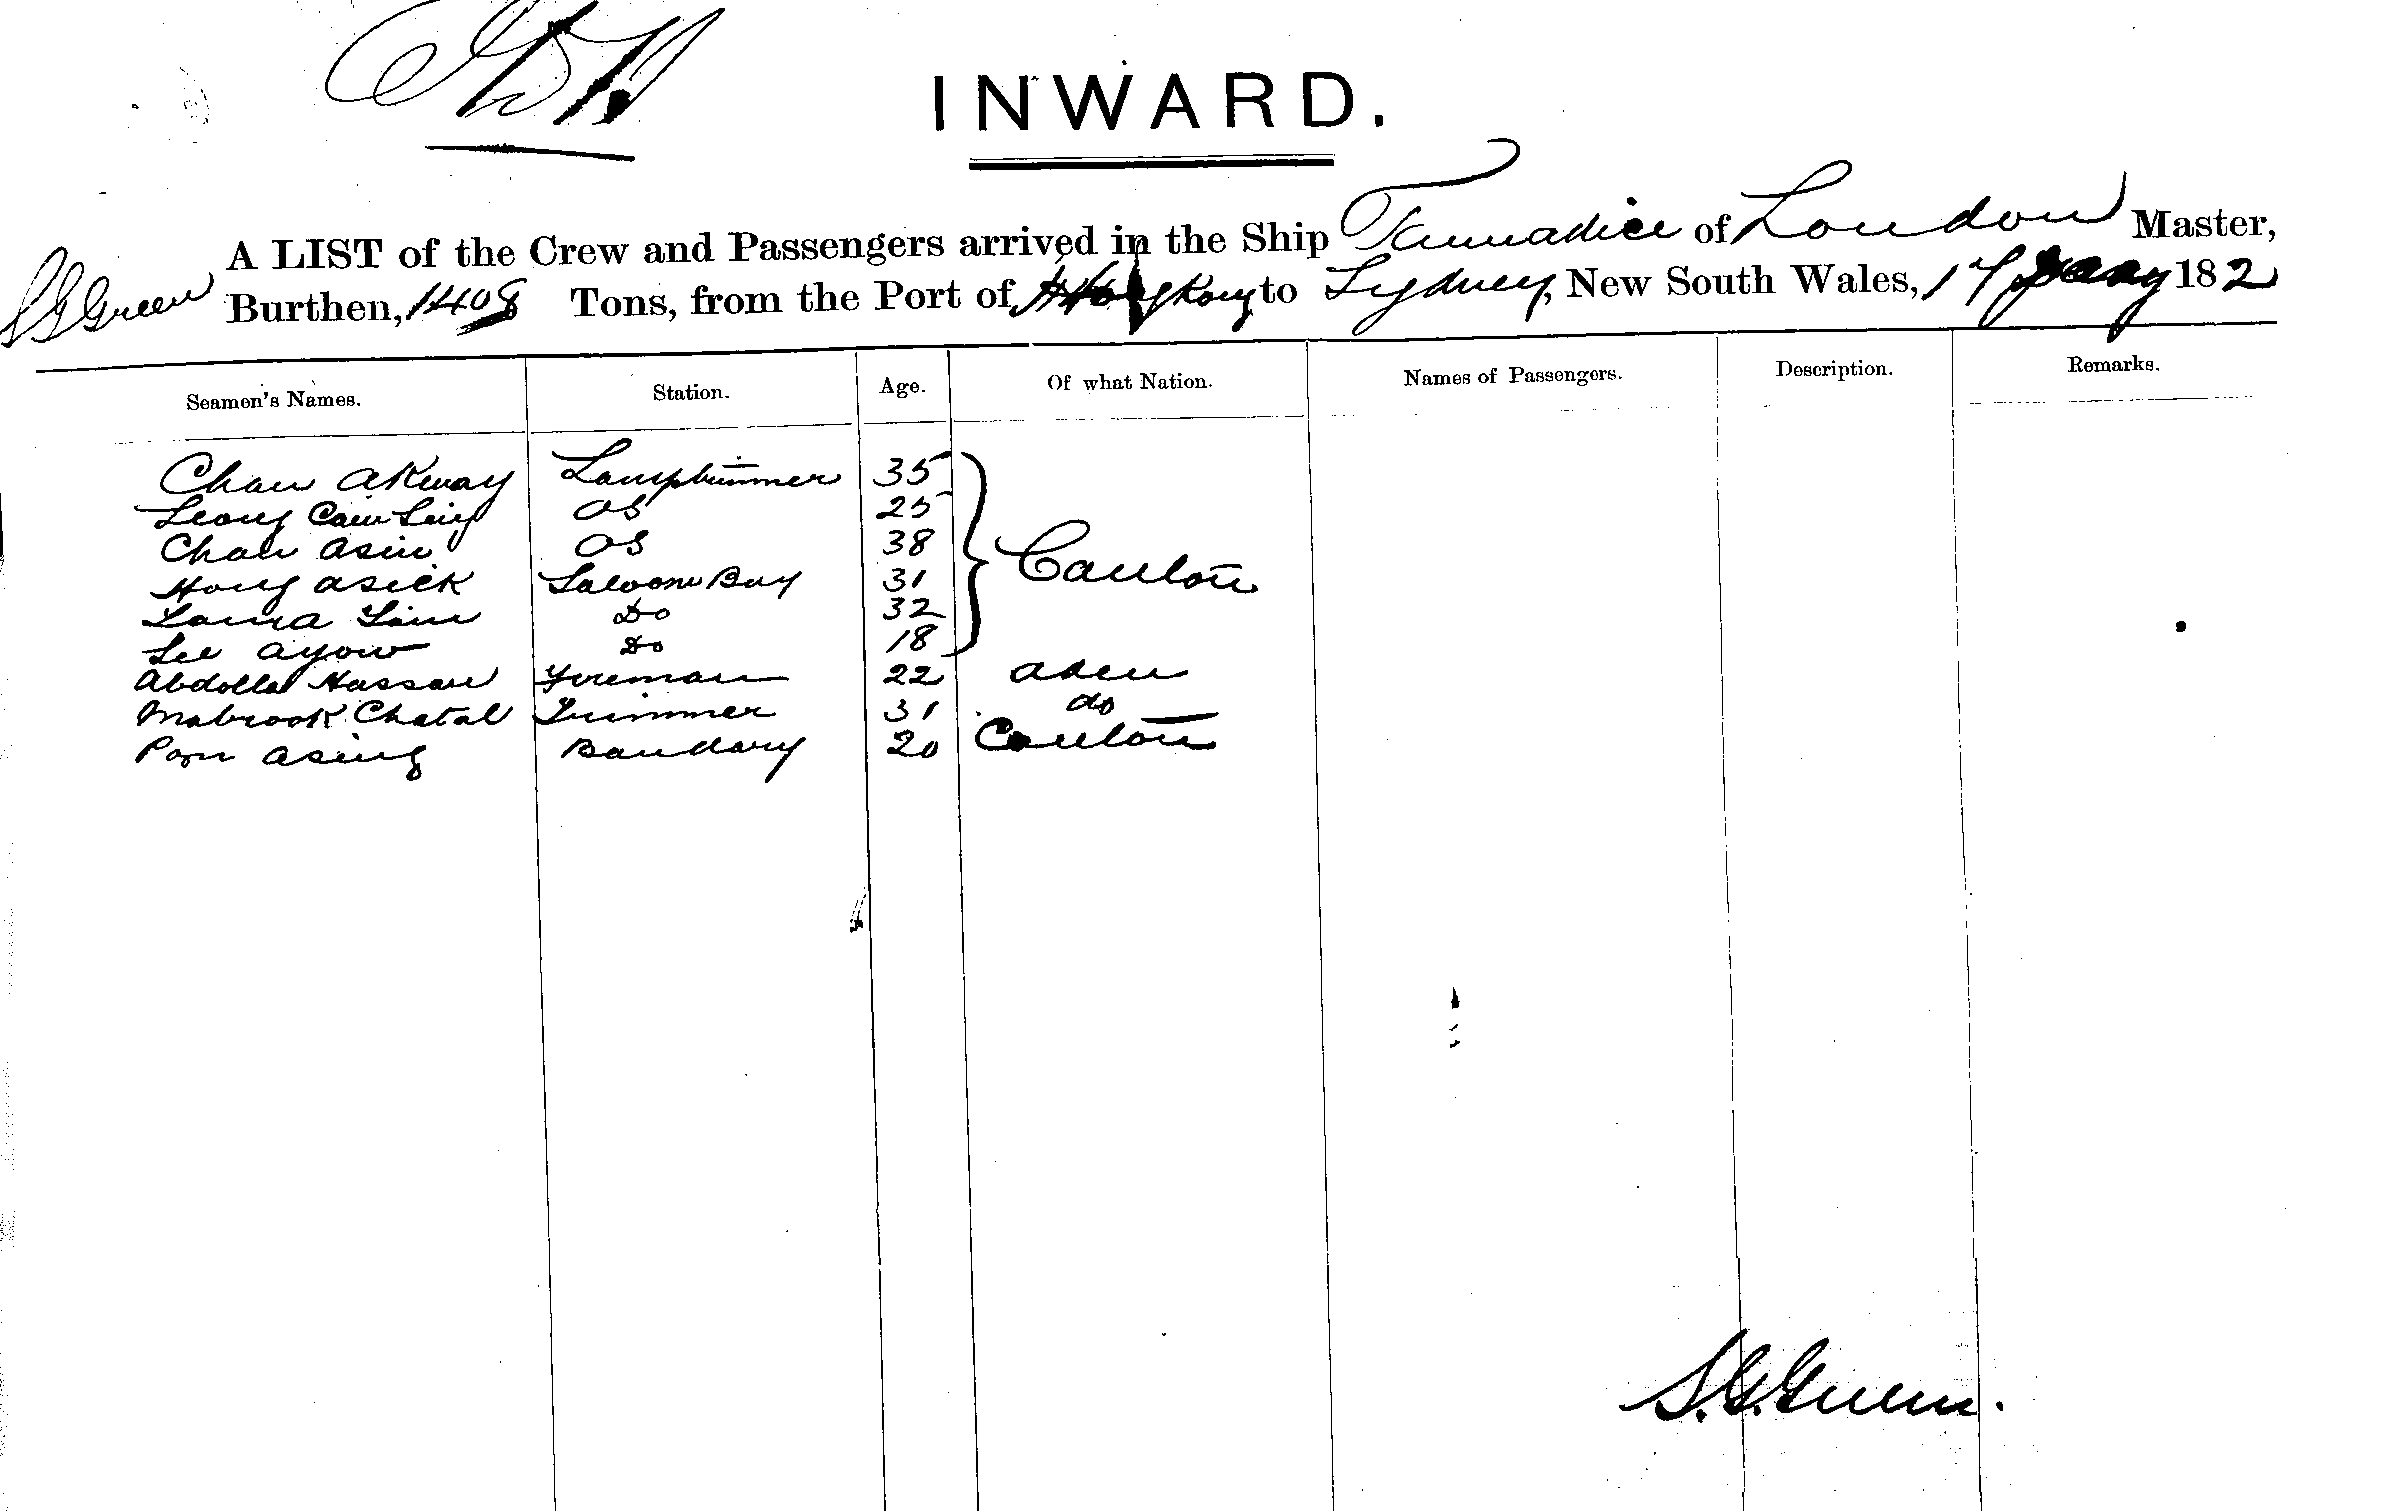 INWARD.
A LIST of the Crew and Passengers arrived in the Ship Tannadice of London Master,
S G Green Burthen, 1408 Tons, from the Port of Hong Kong to Sydney, New South Wales, 17 Jany 182
Seamen's Names. Station. Age. Of what Nation. Names of Passengers. Description. Remarks.
Chan Akway Lamptrimmer 35
Leong Cam Ling OS 25
Chan Asin OS 38 Canton
Hong Asick Saloon Boy 31
Do 32
Lee Ayow Do 18
Abdolla Hassan Fireman 22 Aden
Mabrook Chatal Trimmer 31 do
Asing Bandary 20 Canton
S. G. Green.